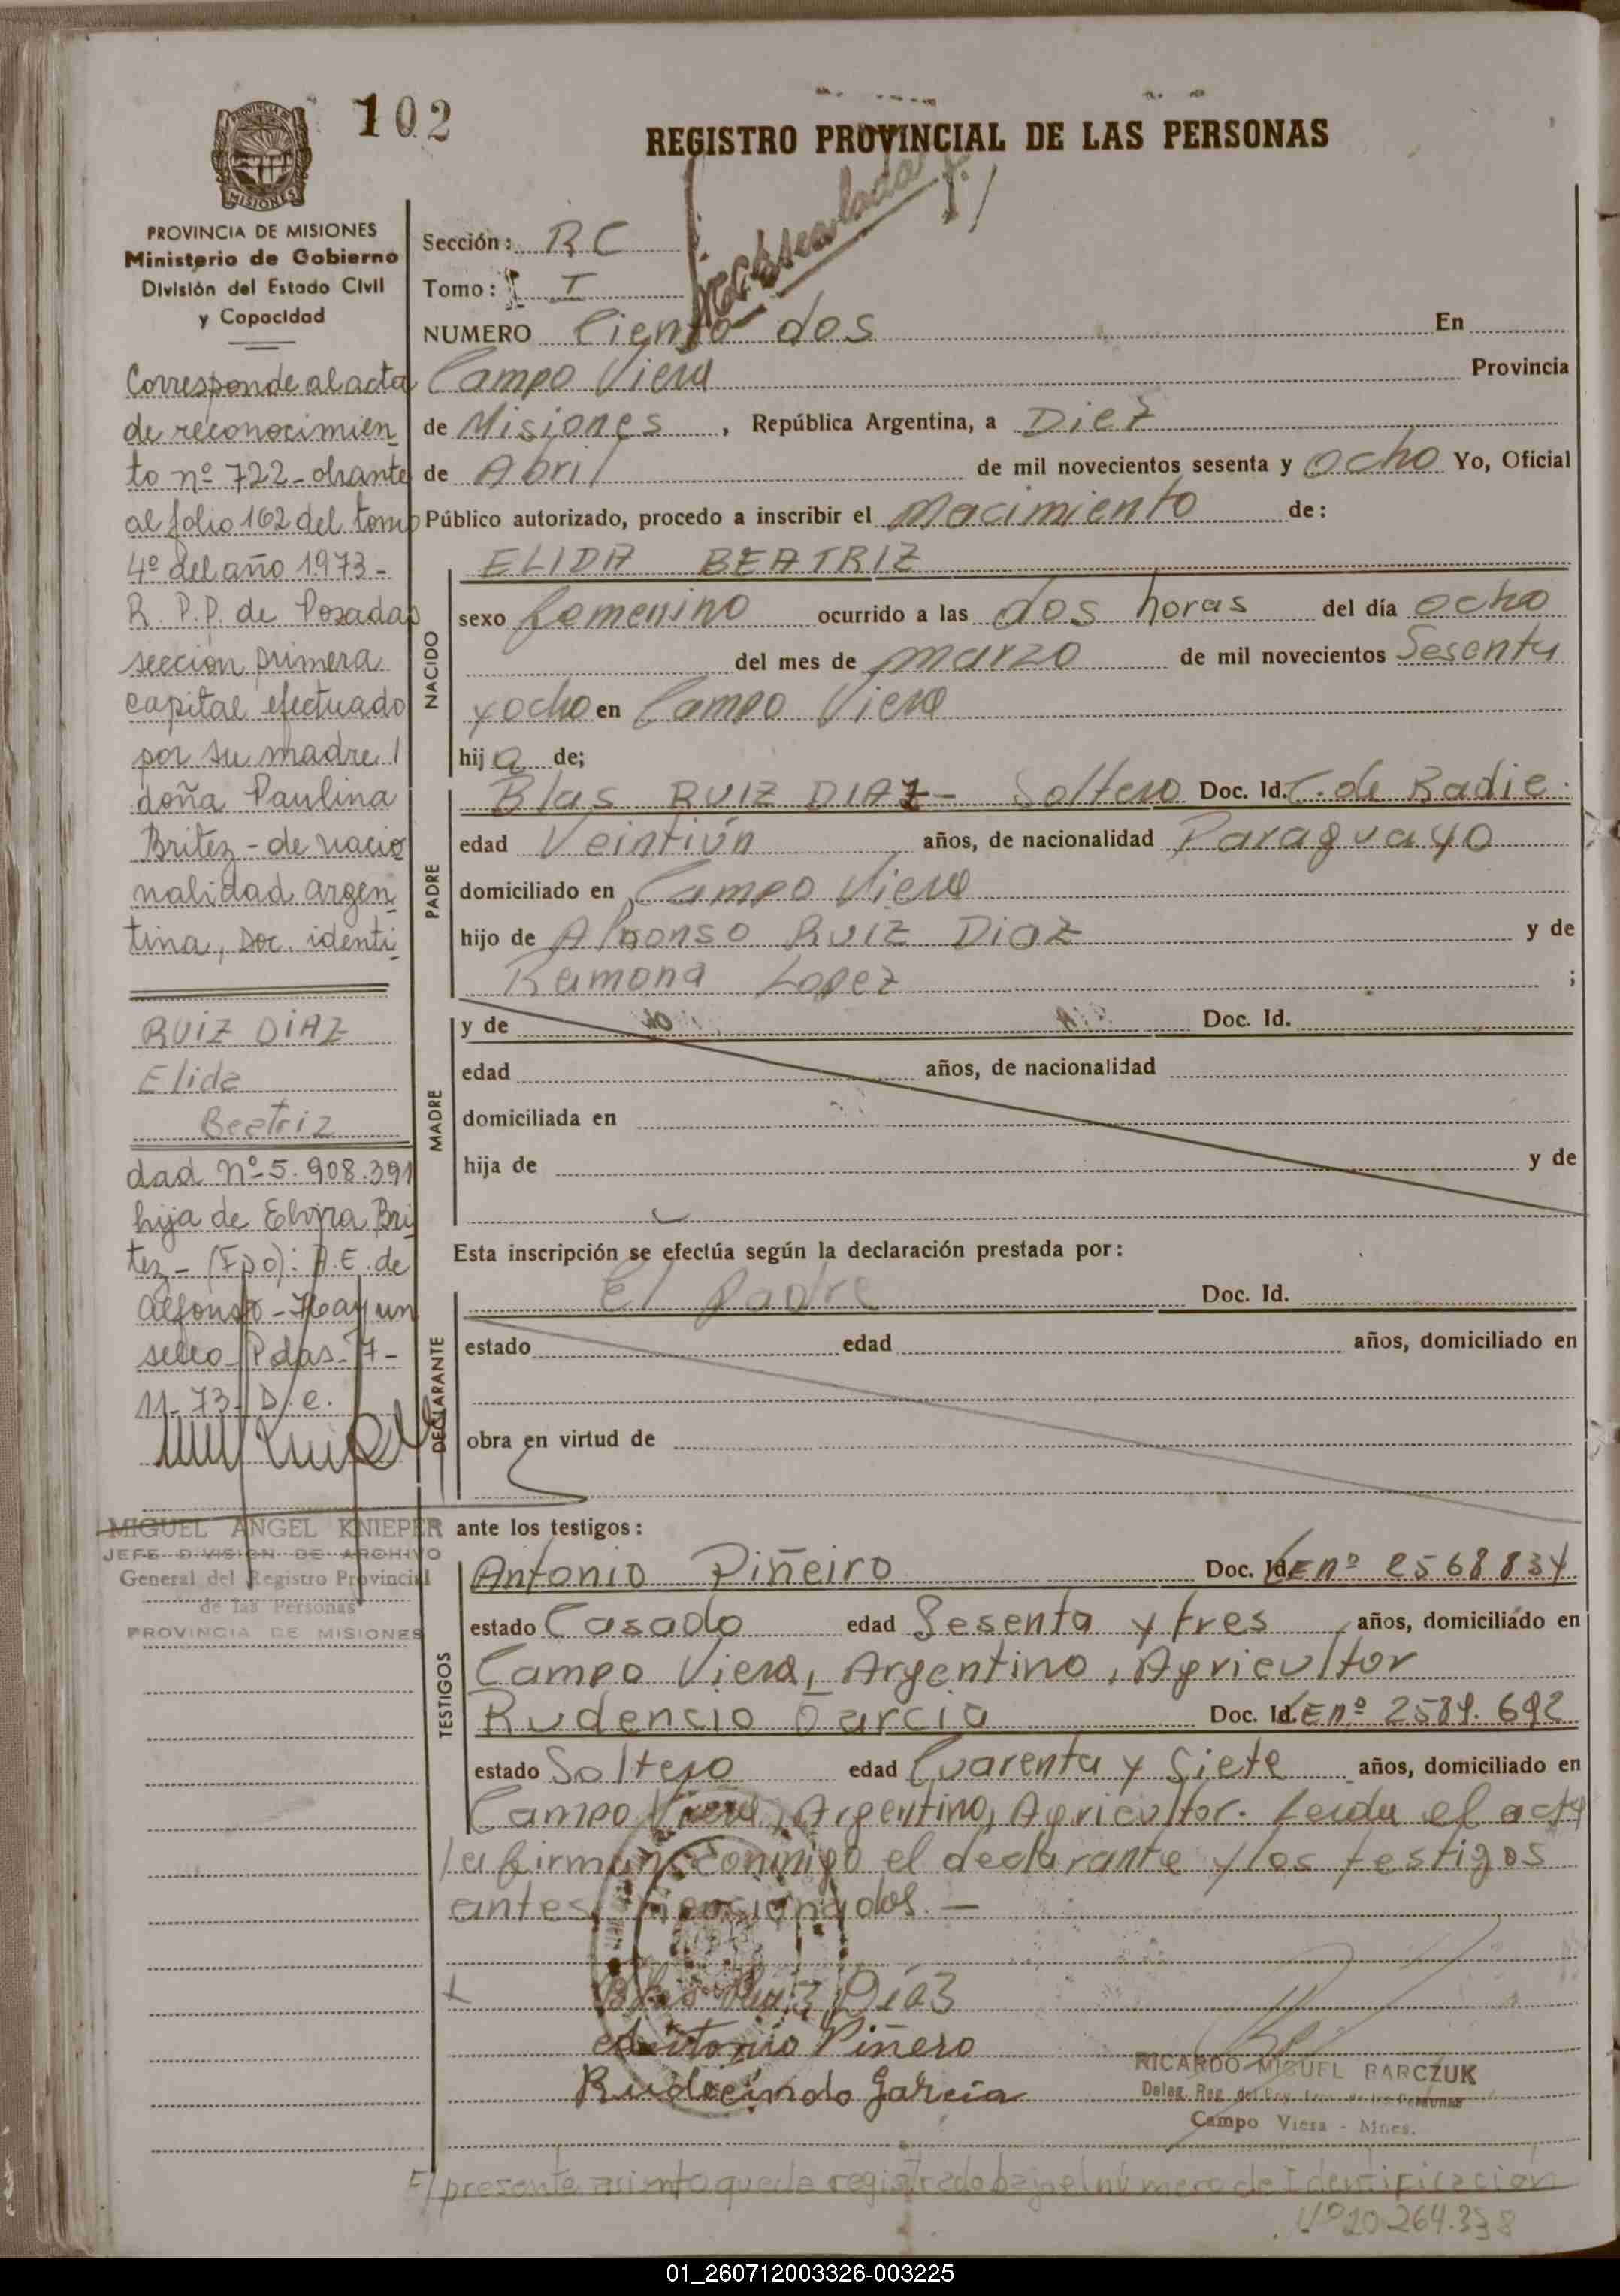 102
REGISTRO PROVINCIAL DE LAS PERSONAS
PROVINCIA DE MISIONES
Ministerio de Gobierno
División del Estado Civil
y Capacidad
Sección: RC
Tomo: I
NUMERO Ciento dos En
Campo Viera Provincia
de Misiones, República Argentina, a Diez
de Abril de mil novecientos sesenta y ocho Yo, Oficial
Público autorizado, procedo a inscribir el Nacimiento de:
ELIDA BEATRIZ
NACIDO
sexo femenino ocurrido a las dos horas del día ocho
del mes de marzo de mil novecientos Sesenta
y ocho en Campo Viera
hija de;
PADRE
Blas RUIZ DIAZ - Soltero Doc. Id. C. de Radic.
edad Veintiún años, de nacionalidad Paraguayo
domiciliado en Campo Viera
hijo de Alfonso Ruiz Diaz y de
Ramona Lopez ;
MADRE
y de Doc. Id.
edad años, de nacionalidad
domiciliada en
hija de y de
Esta inscripción se efectúa según la declaración prestada por:
DECLARANTE
El padre Doc. Id.
estado edad años, domiciliado en
obra en virtud de
ante los testigos:
TESTIGOS
Antonio Piñeiro Doc. Id. LE nº 2568834
estado Casado edad Sesenta y tres, años, domiciliado en
Campo Viera, Argentino, Agricultor
Rudencio Garcia Doc. Id. LE nº 2589.692
estado Soltero edad Cuarenta y Siete años, domiciliado en
Campo Viera, Argentino, Agricultor. Leida el acta
la firman conmigo el declarante y los testigos
antes mencionados. —
Blas Ruiz Díaz
Antonio Piñero
Rudecindo García
RICARDO MIGUEL BARCZUK
Campo Viera - Mnes.
El presente asiento queda registrado bajo el número de Identificación
Nº 20.264.338
Corresponde al acta
de reconocimien
to nº 722 - obrante
al folio 162 del tomo
4º del año 1973 -
R. P. P. de Posadas
seccion primera
capital efectuado
por su madre
doña Paulina
Britez - de nacio
nalidad argen
tina, Doc. identi
RUIZ DIAZ
Elida
Beatriz
dad nº 5.908.391
hija de Elvira Bri
tez - (Fdo): A.E. de
Alfonso - Hay un
sello - Pdas - 7 -
11 - 73 - D/e.
MIGUEL ANGEL KNIEPER
JEFE DIVISION DE ARCHIVO
General del Registro Provincial
de las Personas
PROVINCIA DE MISIONES
01_260712003326-003225